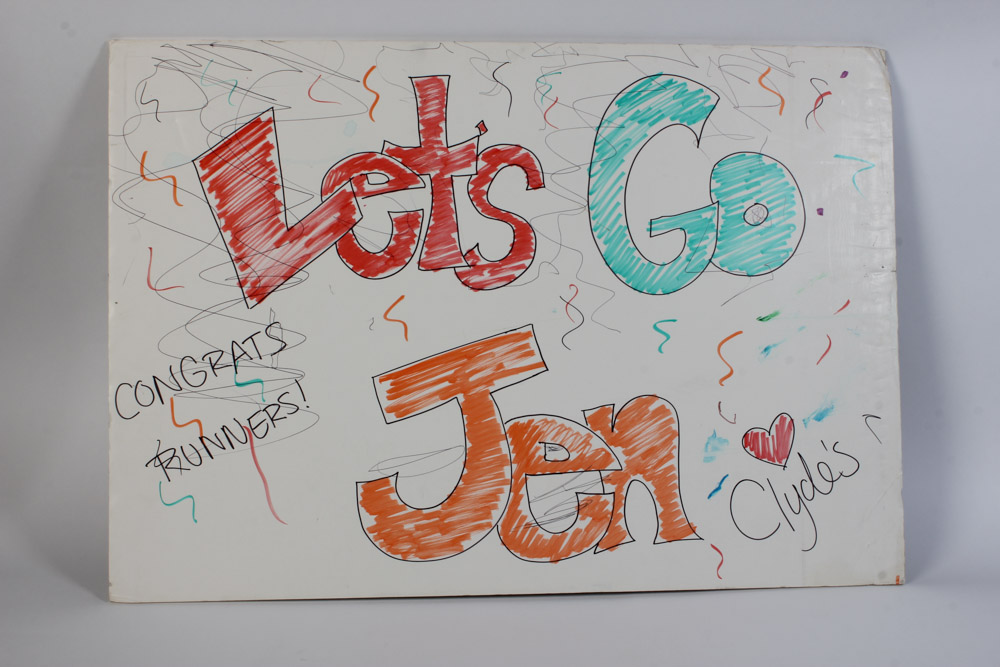 Let's Go
Jen
CONGRATS
RUNNERS!
Clyde's